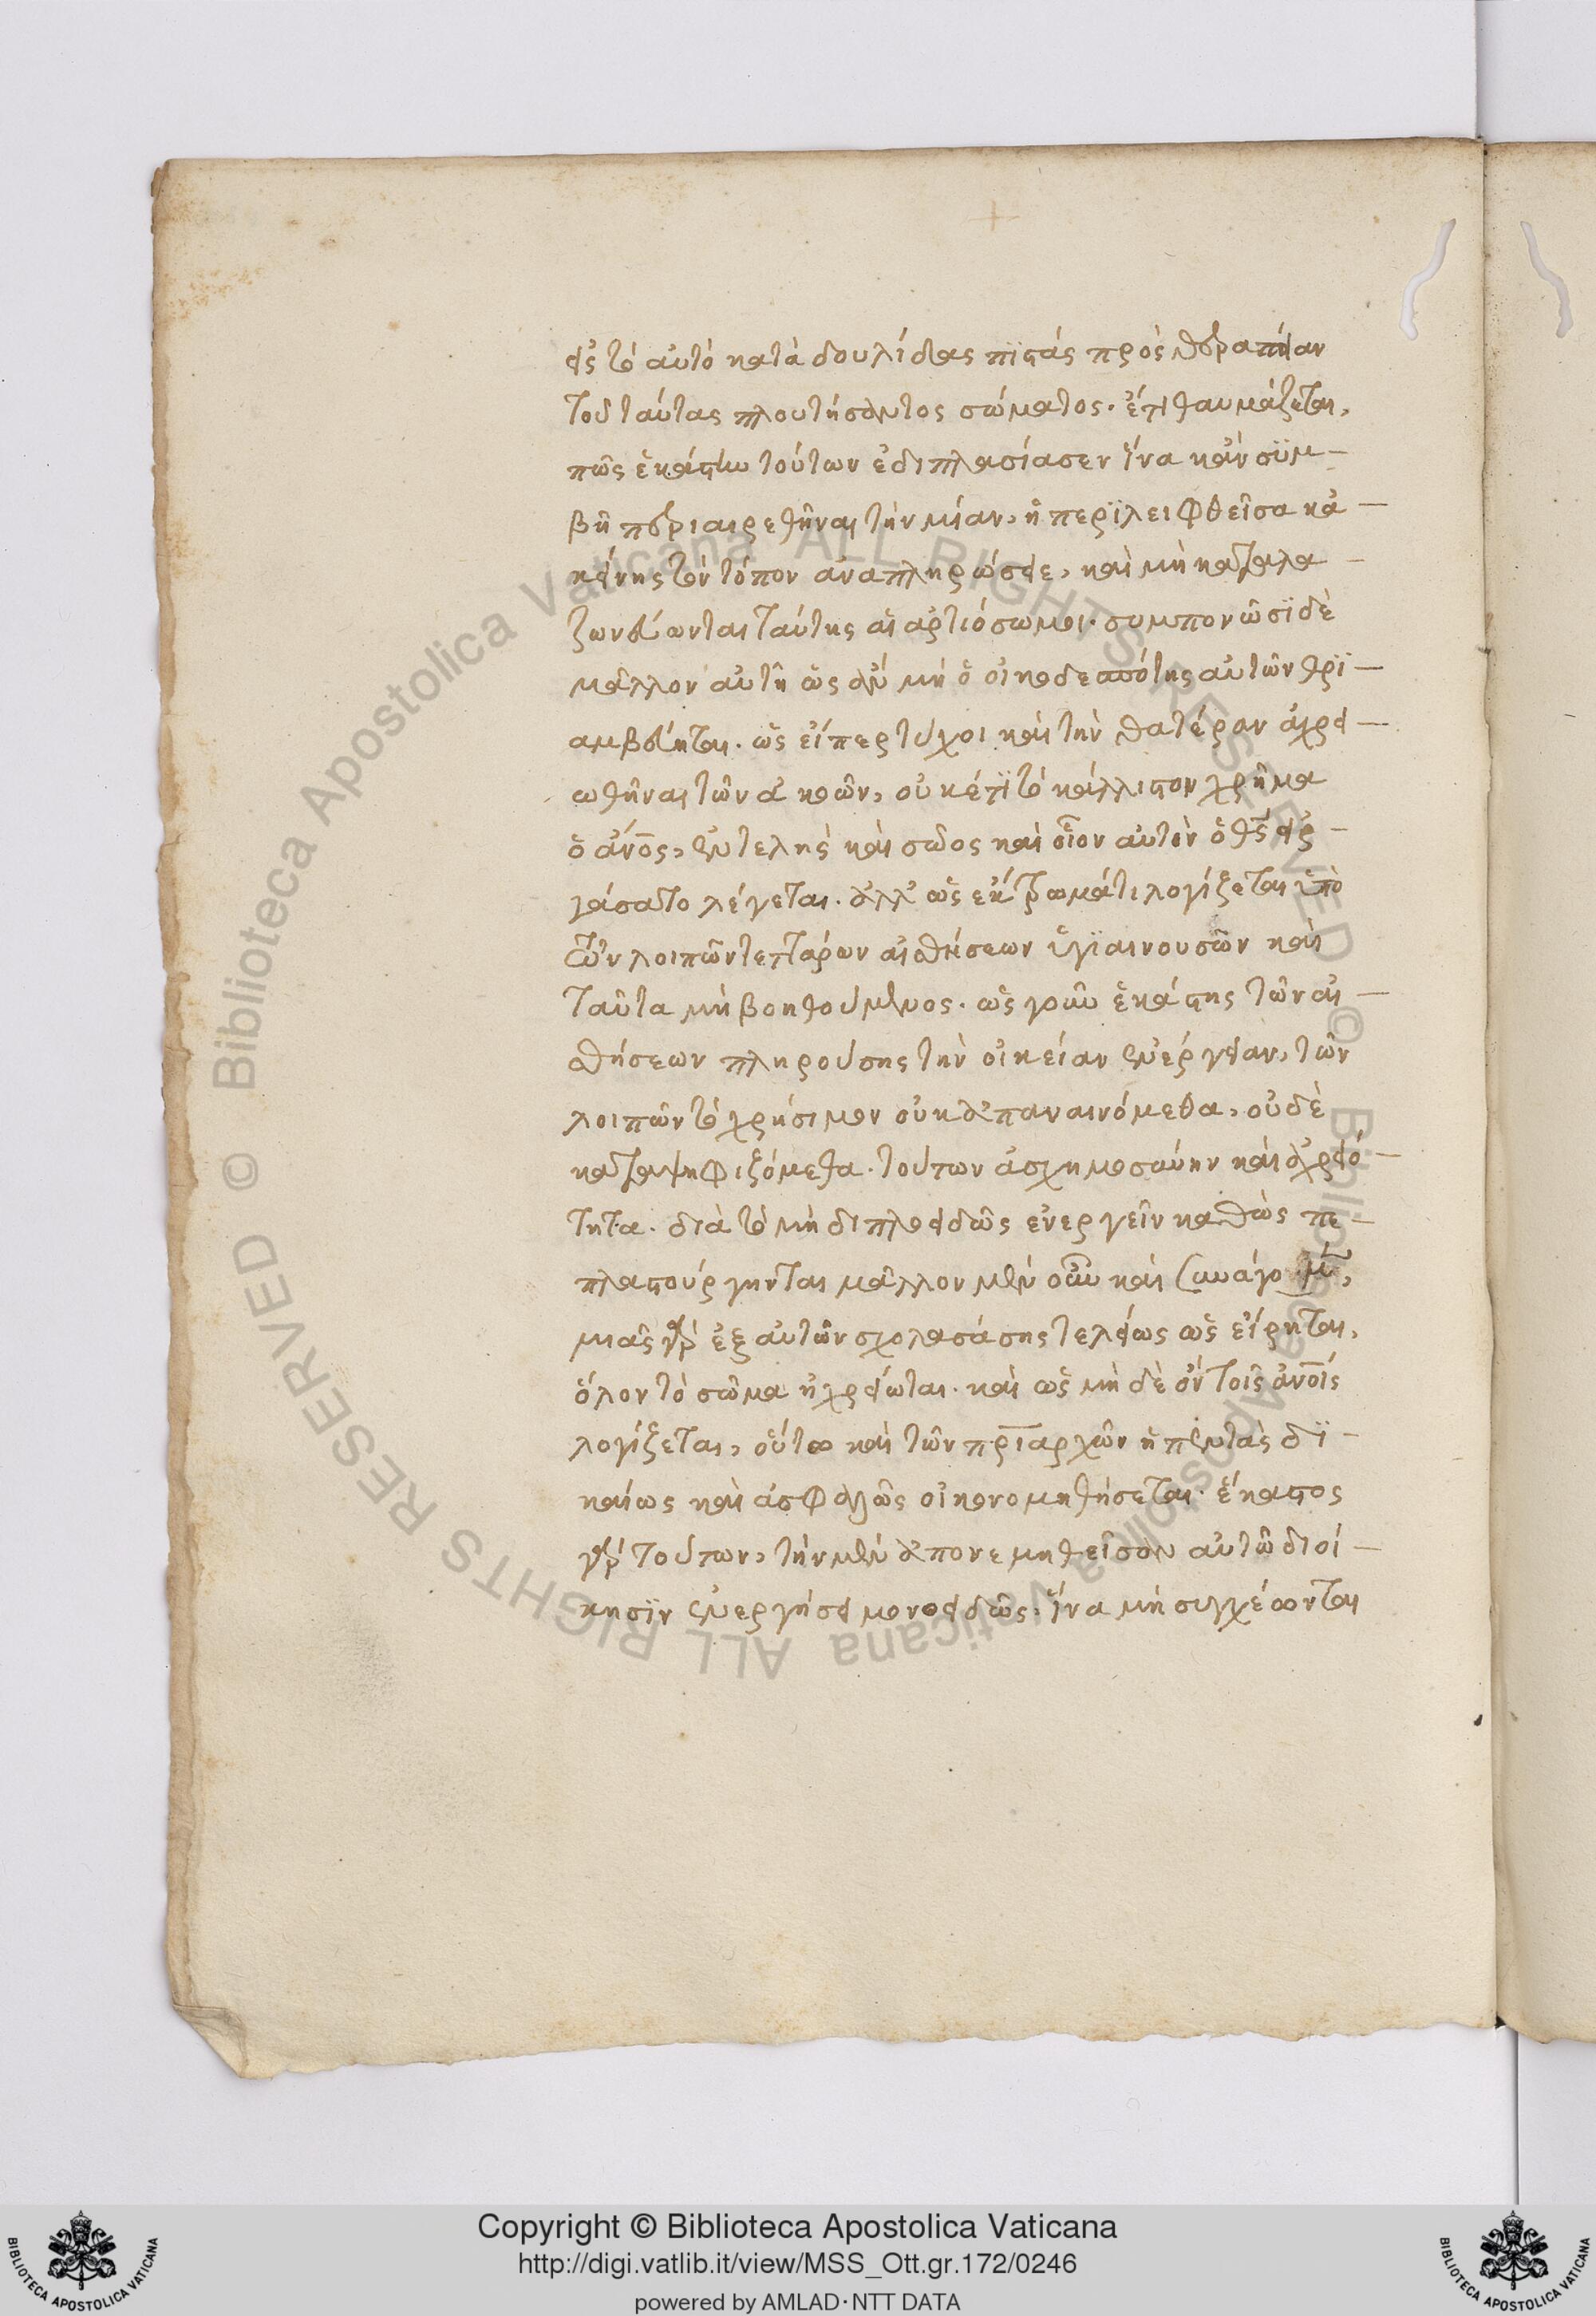 εἰς τὸ αὐτὸ κατὰ δουλίδας πϊστὰς πρὸς θεραπείαν
τοῦ ταύτας πλουτήσαντος σώματος· ἔτι θαυμάζεται,
πῶς ἑκάστην τούτων ἐδιπλασίασεν ἵνα κἂν σϋμ-
βῆ περιαιρεθῆναι τὴν μίαν, ἡ περϊλειφθεῖσα κἀ-
κείνης τὸν τόπον ἀναπληρώσει, καὶ μὴ καταλα-
ζονεύωνται ταύτης αἱ ἀρτιόσωμοι· συμπονῶσϊ δὲ
μᾶλλον αὐτῆ ὡς ἂν μὴ ὁ οἰκοδεσπότης αὐτῶν θρϊ-
αμβεύηται· ὡς εἴπερ τύχοι καὶ τὴν θατέραν ἀχρει-
ωθῆναι τῶν ἀκοῶν, οὐκέτϊ τὸ κάλλιστον χρῆμα
ὁ ἄνος, ἐντελὴς καὶ σῶος καὶ οἷον αὐτὸν ὁ θς εἰρ-
γάσατο λέγεται· ἀλλ' ὡς ἐκτρώματι λογίζεται ὑπὸ
τῶν λοιπῶν τεττάρων αἰσθήσεων ὑγϊαινουσῶν καὶ
ταῦτα μὴ βοηθούμενος· ὡς γοῦν ἑκάστης τῶν αἰ-
σθήσεων πληρούσης τὴν οἰκείαν ἐνέργειαν, τῶν
λοιπῶν τὸ χρήσιμον οὐκ ἀπαναινόμεθα, οὐδὲ
καταψηφιζόμεθα· τούτων ἀσχημοσύνην καὶ ἀχρειό-
τητα· διὰ τὸ μὴ διπλοειδῶς ἐνεργεῖν καθὼς πε-
πλαστούργηνται μᾶλλον μὲν οὖν καὶ συνάγομεν,
μιᾶς γὰρ ἐξ αὐτῶν σχολασάσης τελείως ὡς εἴρηται,
ὅλον τὸ σῶμα ἠχρείωται· καὶ ὡς μὴ δὲ ὂν τοῖς ἀνοις
λογίζεται, οὕτω καὶ τῶν πριαρχῶν ἡ πεντὰς δϊ-
καίως καὶ ἀσφαλῶς οἰκονομηθήσεται· ἕκαστος
γὰρ τούτων, τὴν μὲν ἀπονεμηθεῖσαν αὐτῶ διοί-
κησϊν ἐνεργήσει μονοειδῶς, ἵνα μὴ συγχέωνται
Copyright © Biblioteca Apostolica Vaticana
http://digi.vatlib.it/view/MSS_Ott.gr.172/0246
powered by AMLAD·NTT DATA